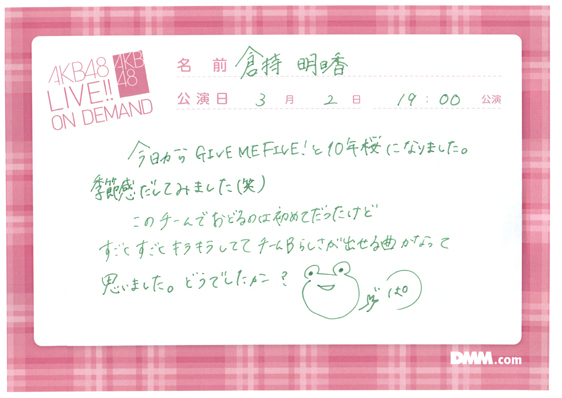 AKB48
LIVE!!
ON DEMAND
AKB
48
名前 倉持 明日香
公演日 3月2日 19:00 公演
今日から GIVE ME FIVE! と10年桜になりました。
季節感だしてみました(笑)
このチームでおどるのは初めてだったけど
すごくすごくキラキラしててチームBらしさが出せる曲かなって
思いました。どうでしたかー?
DMM.com